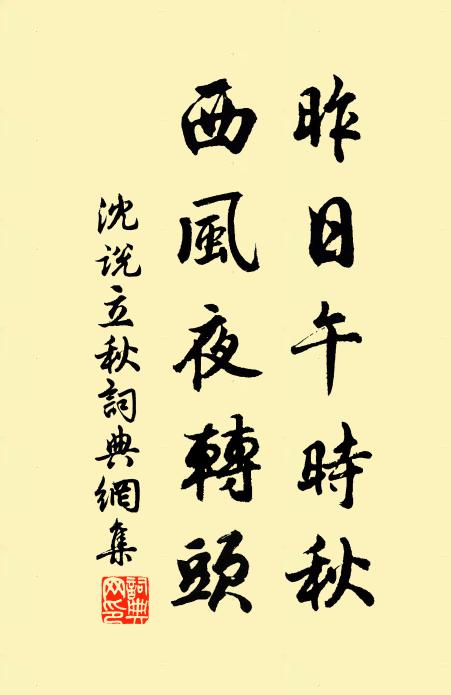 昨日午時秋
西風夜轉頭
沈说立秋詞典網集
詞典网印